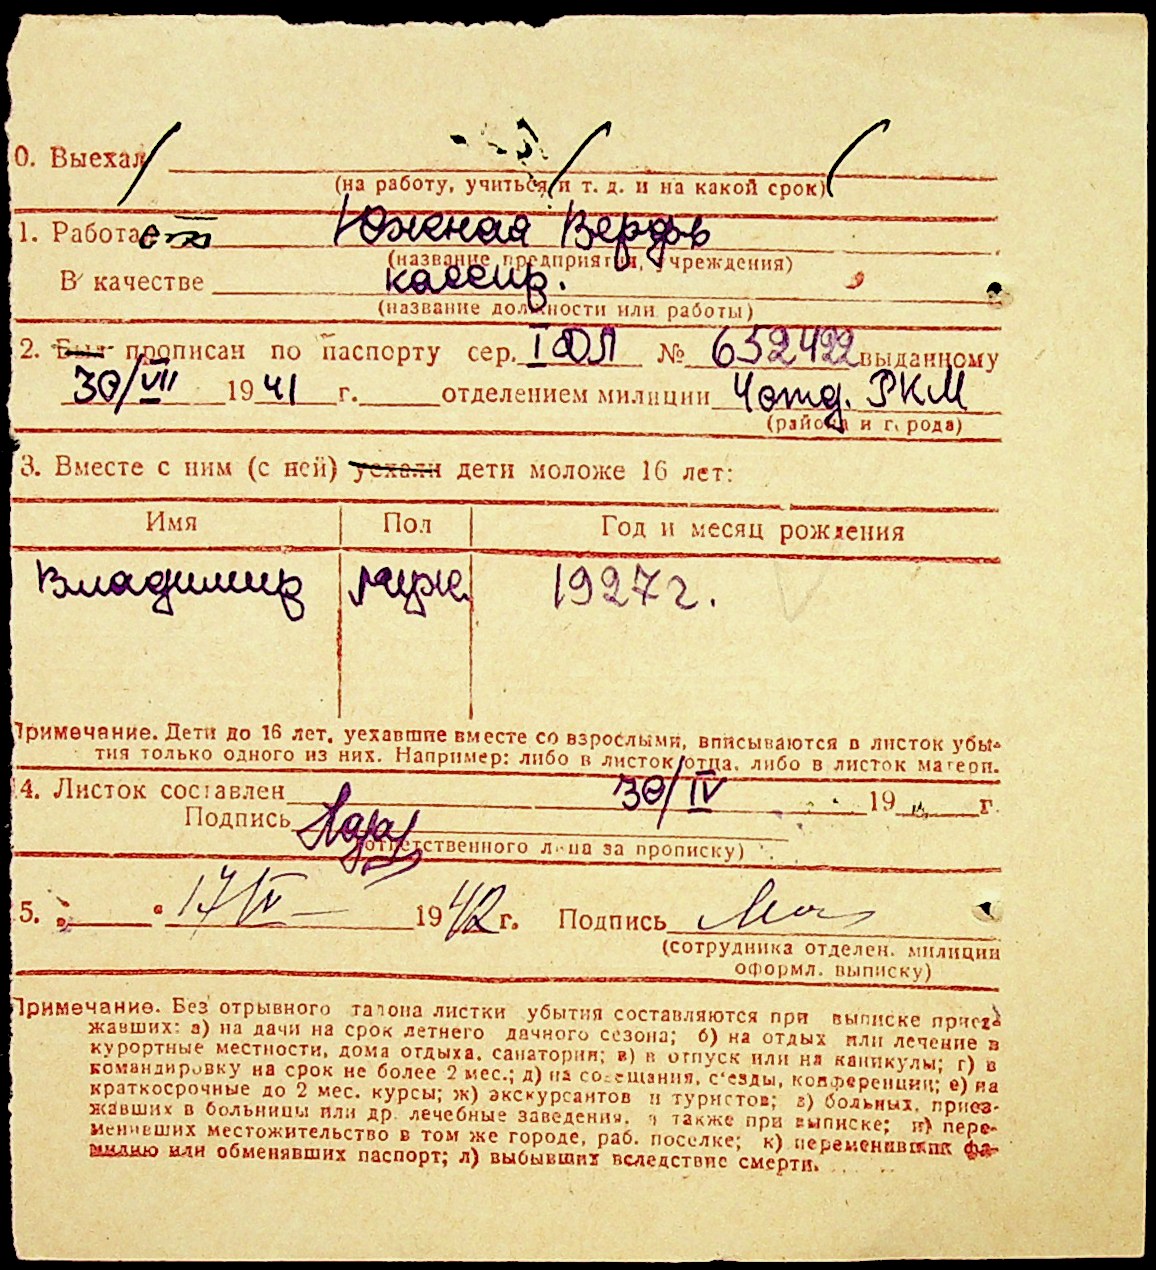 0. Выехал
(на работу, учиться и т. д. и на какой срок)
1. Работает Южная Верфь
(название предприятия, учреждения)
В качестве кассир.
(название должности или работы)
2. Был прописан по паспорту сер. I ФЛ № 652422 выданному
30/VII 1941 г. отделением милиции 4 отд. РКМ
(района и города)
3. Вместе с ним (с ней) уехали дети моложе 16 лет:
Имя Пол Год и месяц рождения
Владимир муж. 1927 г.
Примечание. Дети до 16 лет, уехавшие вместе со взрослыми, вписываются в листок убы-
тия только одного из них. Например: либо в листок отца, либо в листок матери.
4. Листок составлен 30/IV 19 г.
Подпись
(ответственного лица за прописку)
5. 17/IV 1942 г. Подпись
(сотрудника отделен. милиции
оформл. выписку)
Примечание. Без отрывного талона листки убытия составляются при выписке приез-
жавших: а) на дачи на срок летнего дачного сезона; б) на отдых или лечение в
курортные местности, дома отдыха, санатории; в) в отпуск или на каникулы; г) в
командировку на срок не более 2 мес.; д) на совещания, с'езды, конференции; е) на
краткосрочные до 2 мес. курсы; ж) экскурсантов и туристов; з) больных, приез-
жавших в больницы или др. лечебные заведения, а также при выписке; и) пере-
менивших местожительство в том же городе, раб. поселке; к) переменивших фа-
милию или обменявших паспорт; л) выбывших вследствие смерти.